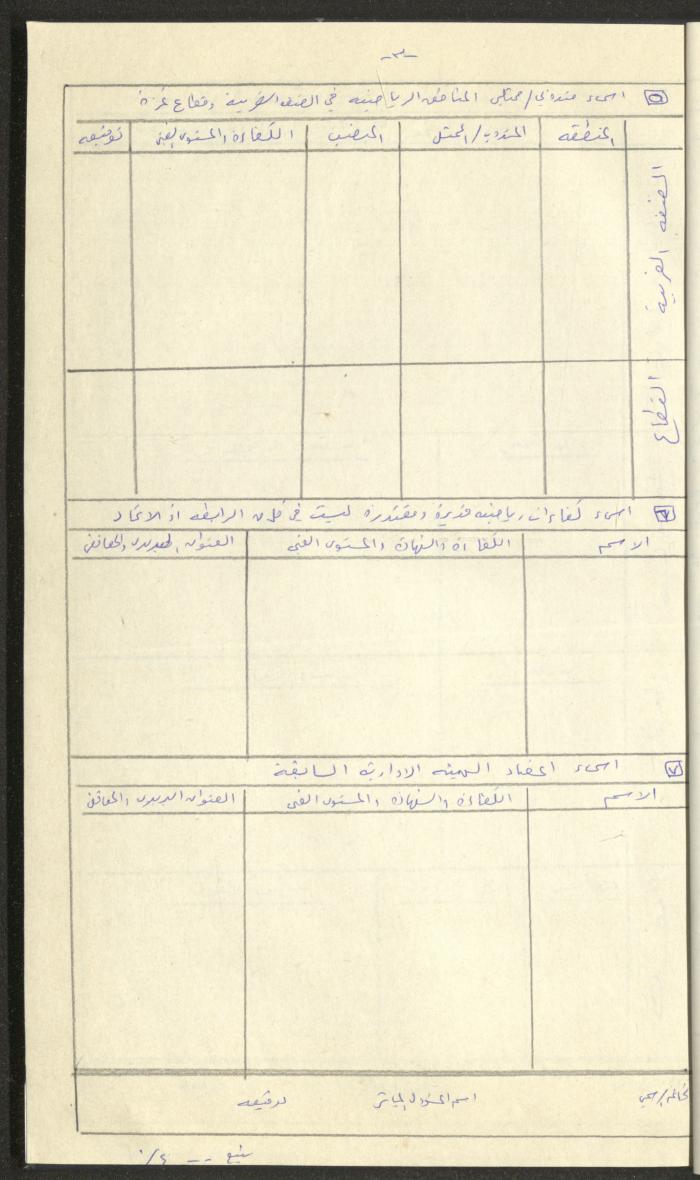 -٣-
٥ اسماء مندوبي/ممثلي المناطق الرياضيه في الضفه الغربية وقطاع غزة
المنطقه المندوب/الممثل المنصب الكفاءة والمستوى الفني توقيعه
الضفه الغربية
القطاع
٦ اسماء كفاءات رياضيه قديرة ومقتدرة ليست في كل من الرابطه او الاتحاد
الاسم الكفاءة والشهادة والمستوى الفني العنوان البريدي والهاتفي
٧ اسماء اعضاء الهيئه الادارية السابقة
الاسم الكفاءة والشهادة والمستوى الفني العنوان البريدي والهاتفي
اسم المسؤول المباشر توقيعه
يتبع -- ٤/